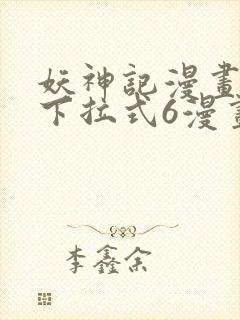 妖神記漫畫
下拉式6漫畫
李鑫余